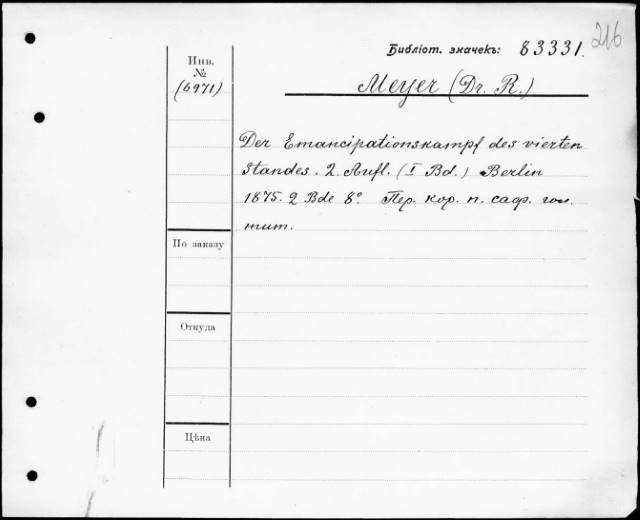 216
Библіот. значекъ: 83331.
Инв.
№
(6971)
Meyer (Dr. R.)
Der Emancipationskampf des vierten
Standes. 2. Aufl. (I Bd.) Berlin
1875. 2 Bde 8° Пер. кор. п. саф. зол.
тит.
По заказу
Откуда
Цѣна